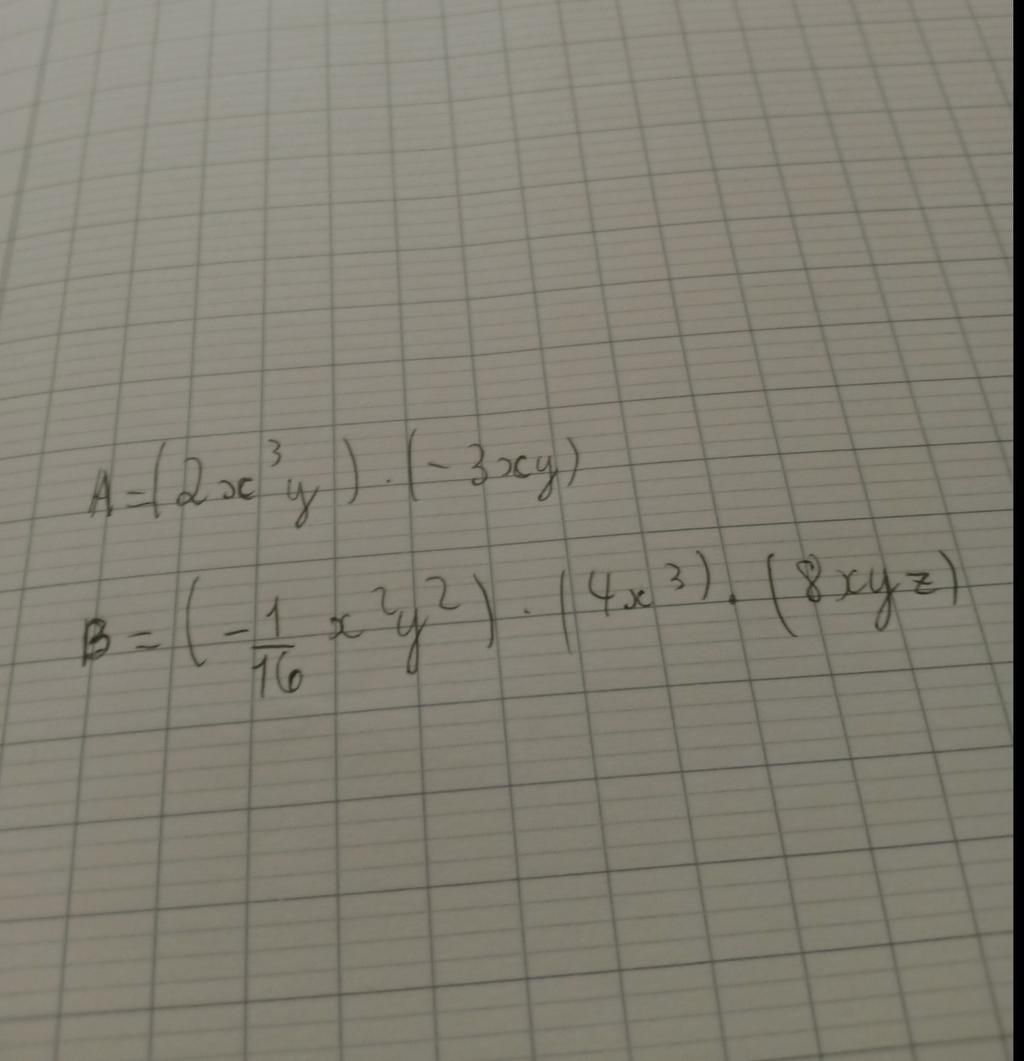 A=(2x³y).(-3xy)
B = (-1/16 x²y²).(4x³).(8xyz)